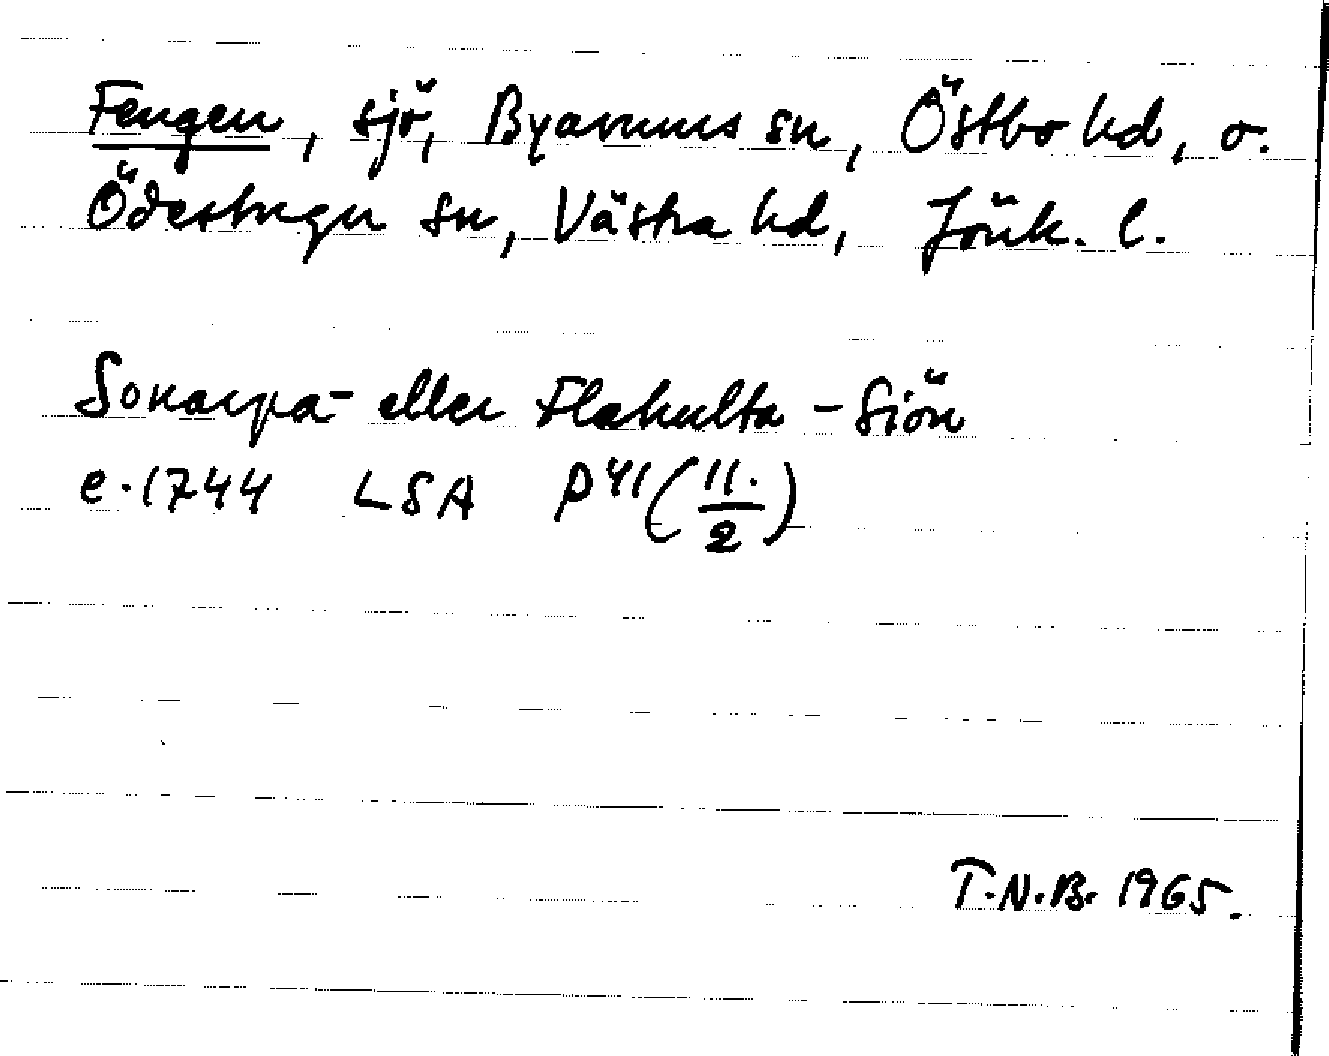 Fengen, sjö, Byarums sn, Östbo hd, o.
Ödestugu sn, Västra hd, Jönk. l.
Sonarpa- eller Flahulta - Siön
e. 1744 LSA P41 (11./2)
T.N.B. 1965.